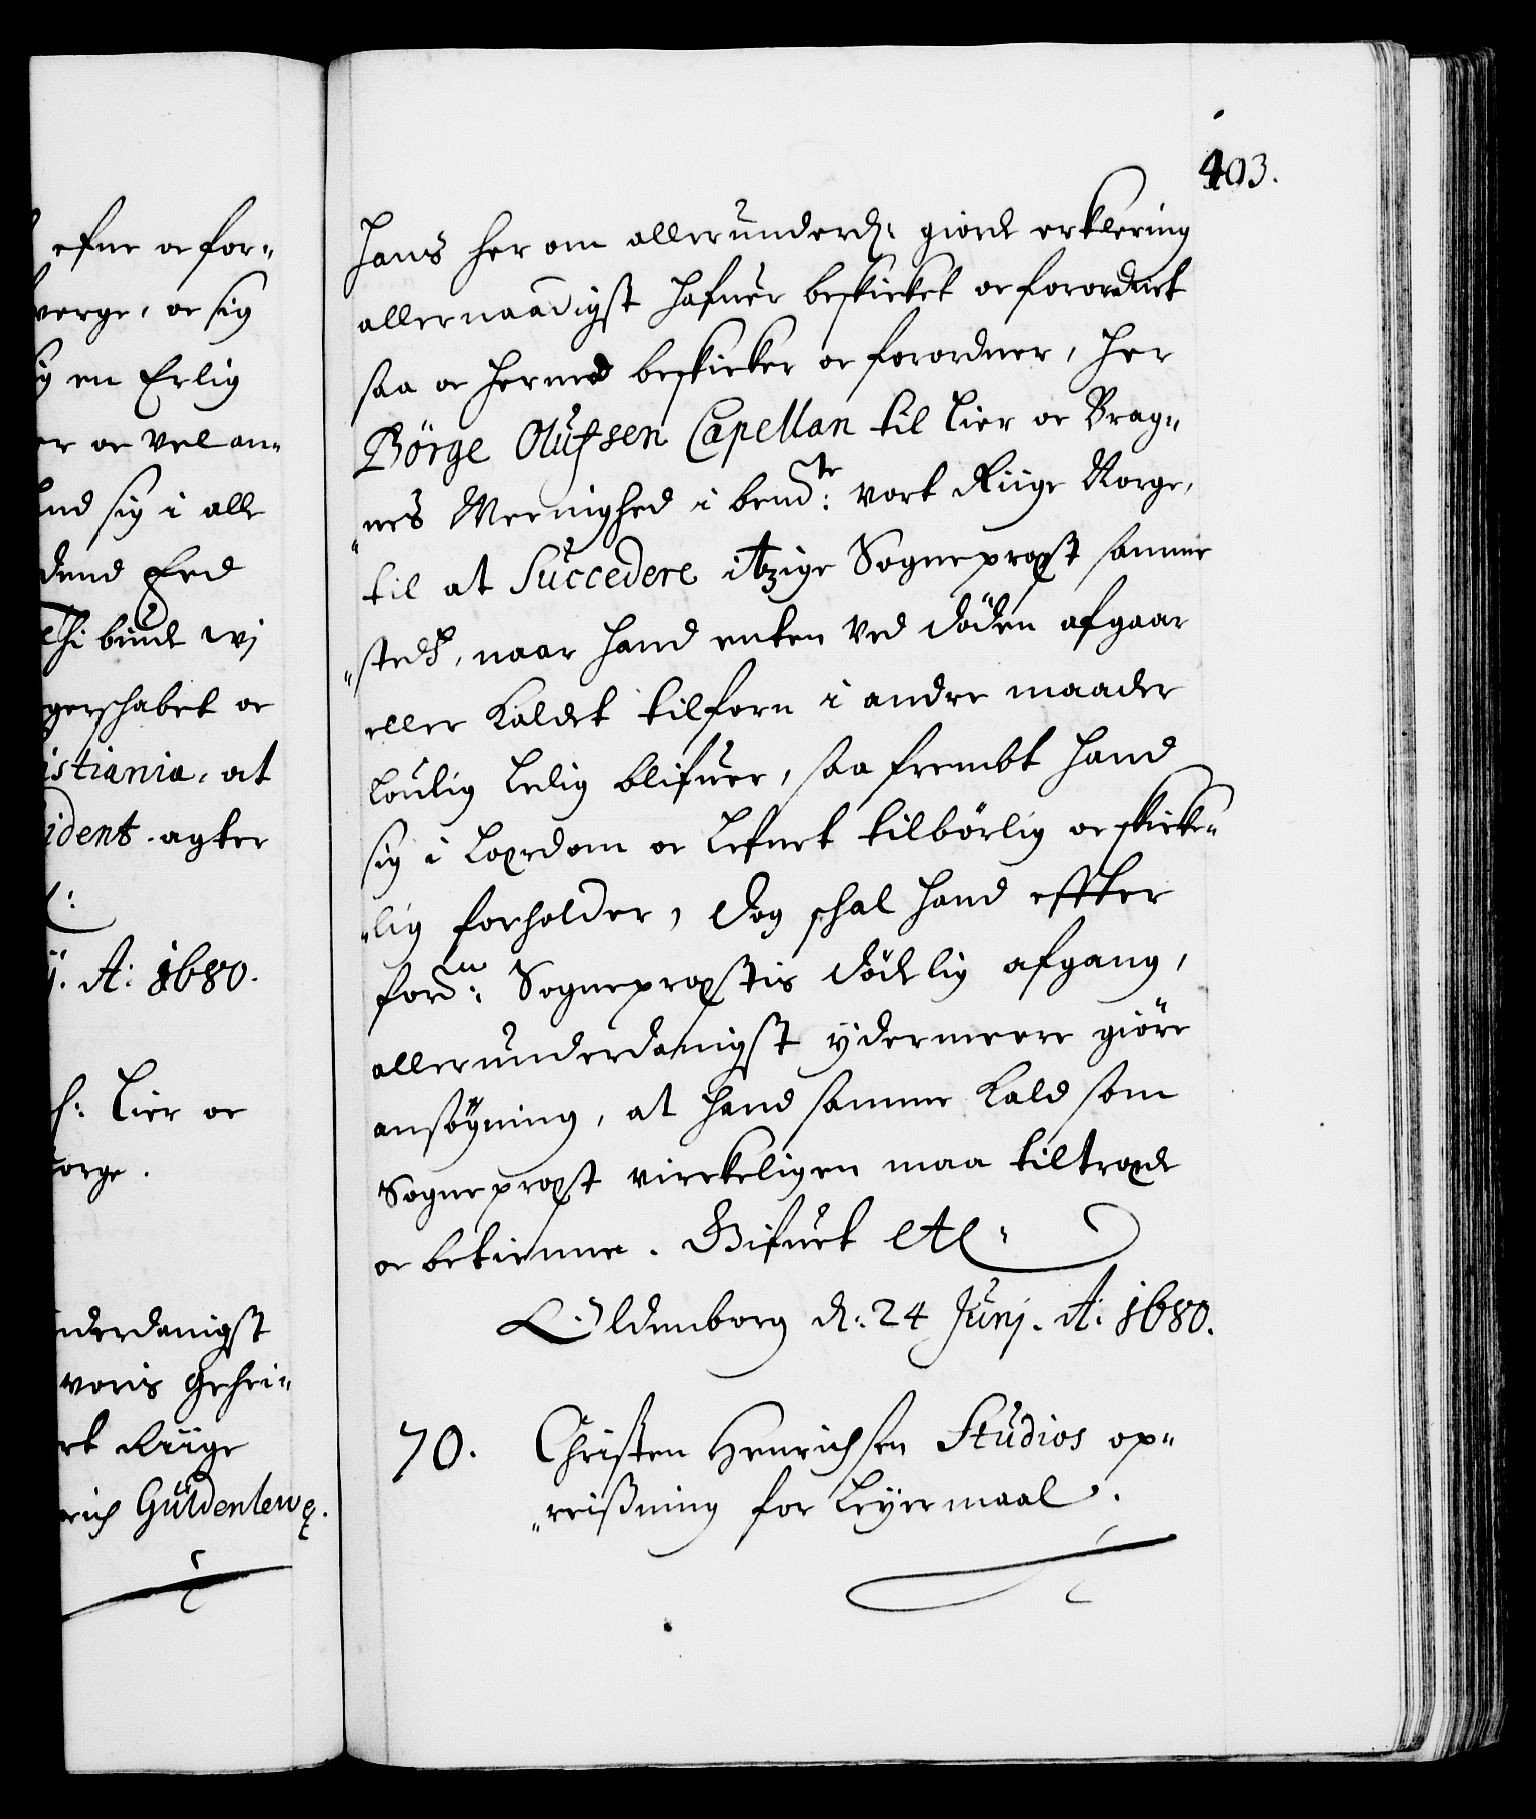 403.
efne oc for-
verge, oc sig
en Erlig
er oc vel an-
sig i alle
Eed
Thi biude wj
gerschabet oc
istiania, at
ident agter
A: 1680.
Lier oc
orge.
nderdanigst
voris Gehei-
rt Riige
rich Güldenlewe.
Hans her om allerunderd: giorde erklering
allernaadigst hafuer beskicket oc forordnet
saa oc hermed beskicker oc forordner, Her
Börge Olufsen Capellan til Lier oc Brag-
nes Meenighed i bemte: vort Riige Norge,
til at Succedere itzige Sognepræst samme
steds, naar hand enten ved döden afgaar
eller Kaldet tilforn i andre maader
loulig ledig blifuer, saa frembt hand
sig i Lærdom oc Lefnet tilbörlig oc skicke-
lig forholder, dog schal hand effter
fordn: Sognepræstis dödelig afgang,
allerunderdanigst ydermeere giöre
ansögning, at hand samme Kald som
Sognepræst virckeligen maa tiltræde
oc betienne. Gifuet etc.
Oldenborg d: 24 Junj. A: 1680.
70. Christen Henrichsen Studios op-
reisning for Leyermaal.